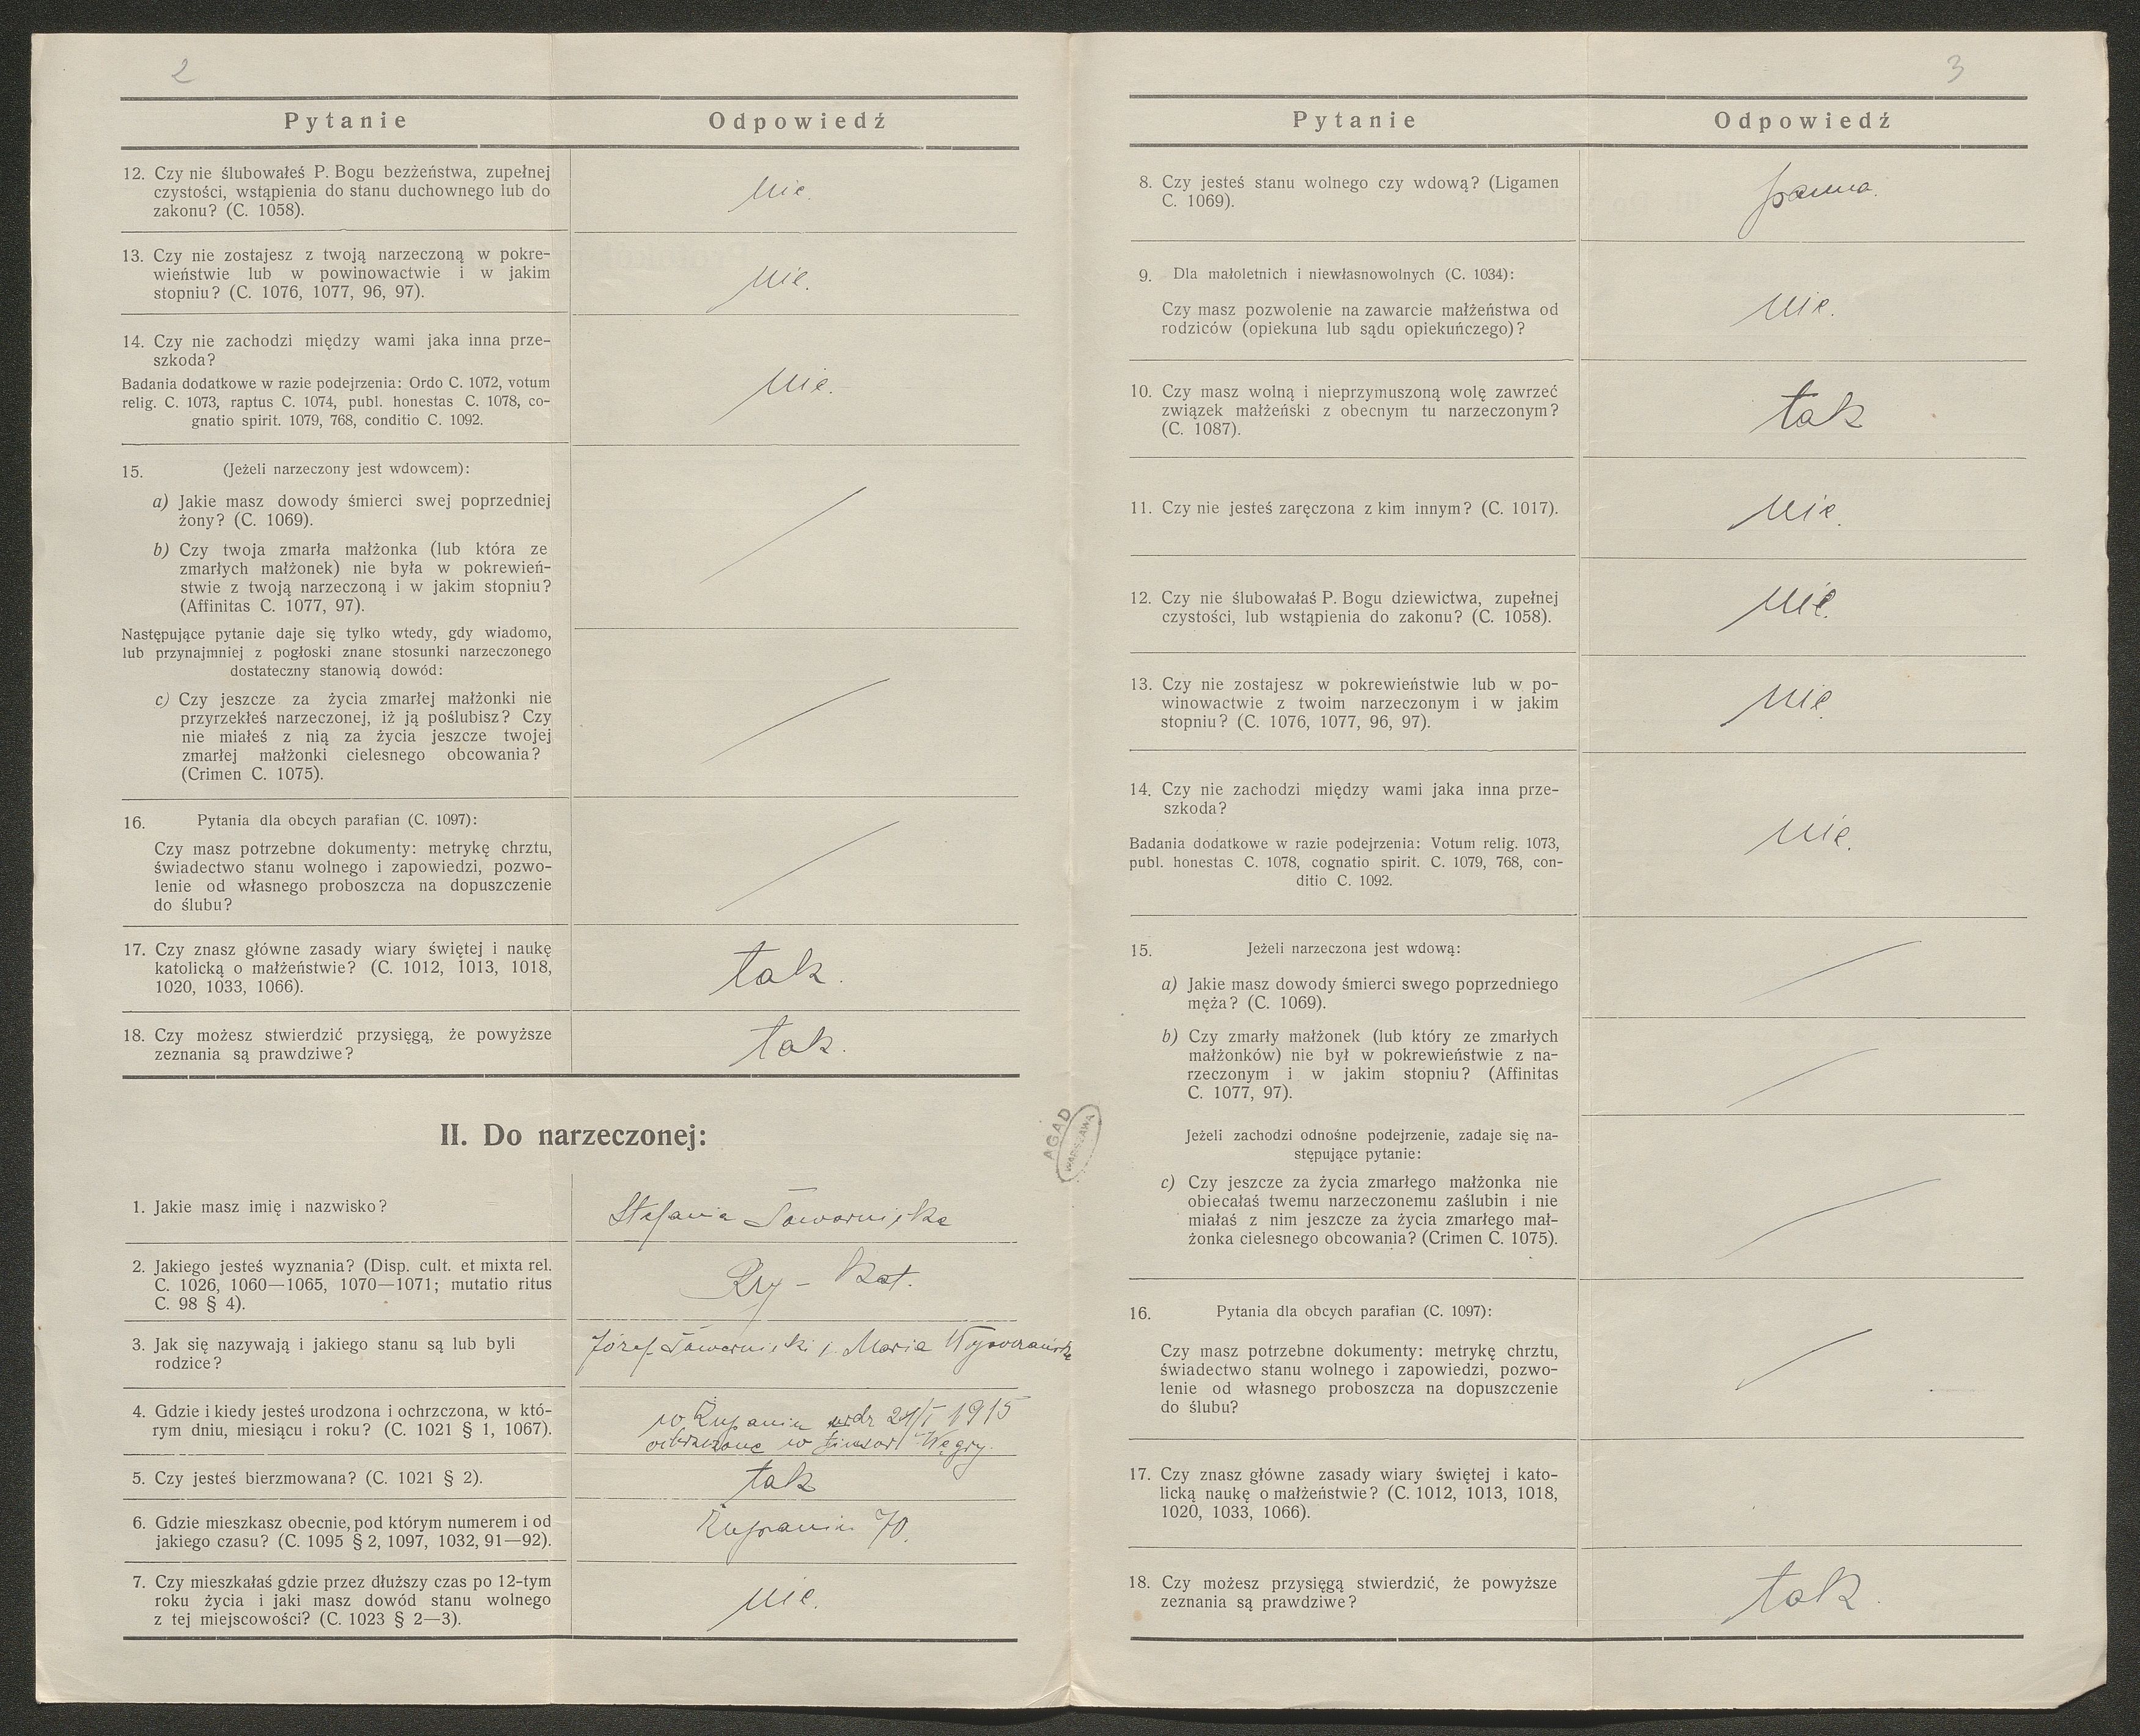 2
Pytanie Odpowiedź
12. Czy nie ślubowałeś P. Bogu bezżeństwa, zupełnej
czystości, wstąpienia do stanu duchownego lub do
zakonu? (C. 1058).
nie.
13. Czy nie zostajesz z twoją narzeczoną w pokre-
wieństwie lub w powinowactwie i w jakim
stopniu? (C. 1076, 1077, 96, 97).
nie.
14. Czy nie zachodzi między wami jaka inna prze-
szkoda?
Badania dodatkowe w razie podejrzenia: Ordo C. 1072, votum
relig. C. 1073, raptus C. 1074, publ. honestas C. 1078, co-
gnatio spirit. 1079, 768, conditio C. 1092.
nie.
15. (Jeżeli narzeczony jest wdowcem):
a) Jakie masz dowody śmierci swej poprzedniej
żony? (C. 1069).
b) Czy twoja zmarła małżonka (lub która ze
zmarłych małżonek) nie była w pokrewień-
stwie z twoją narzeczoną i w jakim stopniu?
(Affinitas C. 1077, 97).
Następujące pytanie daje się tylko wtedy, gdy wiadomo,
lub przynajmniej z pogłoski znane stosunki narzeczonego
dostateczny stanowią dowód:
c) Czy jeszcze za życia zmarłej małżonki nie
przyrzekłeś narzeczonej, iż ją poślubisz? Czy
nie miałeś z nią za życia jeszcze twojej
zmarłej małżonki cielesnego obcowania?
(Crimen C. 1075).
16. Pytania dla obcych parafian (C. 1097):
Czy masz potrzebne dokumenty: metrykę chrztu,
świadectwo stanu wolnego i zapowiedzi, pozwo-
lenie od własnego proboszcza na dopuszczenie
do ślubu?
17. Czy znasz główne zasady wiary świętej i naukę
katolicką o małżeństwie? (C. 1012, 1013, 1018,
1020, 1033, 1066).
tak.
18. Czy możesz stwierdzić przysięgą, że powyższe
zeznania są prawdziwe?
tak.
II. Do narzeczonej:
1. Jakie masz imię i nazwisko?
Stefania Tawornicka
2. Jakiego jesteś wyznania? (Disp. cult. et mixta rel.
C. 1026, 1060—1065, 1070—1071; mutatio ritus
C. 98 § 4).
Rzy - Kat.
3. Jak się nazywają i jakiego stanu są lub byli
rodzice?
Józef i Maria
4. Gdzie i kiedy jesteś urodzona i ochrzczona, w któ-
rym dniu, miesiącu i roku? (C. 1021 § 1, 1067).
w Żupaniu 1915
w Węgry.
5. Czy jesteś bierzmowana? (C. 1021 § 2).
tak
6. Gdzie mieszkasz obecnie, pod którym numerem i od
jakiego czasu? (C. 1095 § 2, 1097, 1032, 91—92).
Żupanin 70.
7. Czy mieszkałaś gdzie przez dłuższy czas po 12-tym
roku życia i jaki masz dowód stanu wolnego
z tej miejscowości? (C. 1023 § 2—3).
nie.
AGAD
WARSZAWA
3
Pytanie Odpowiedź
8. Czy jesteś stanu wolnego czy wdową? (Ligamen
C. 1069).
panna.
9. Dla małoletnich i niewłasnowolnych (C. 1034):
Czy masz pozwolenie na zawarcie małżeństwa od
rodziców (opiekuna lub sądu opiekuńczego)?
nie.
10. Czy masz wolną i nieprzymuszoną wolę zawrzeć
związek małżeński z obecnym tu narzeczonym?
(C. 1087).
tak
11. Czy nie jesteś zaręczona z kim innym? (C. 1017).
nie.
12. Czy nie ślubowałaś P. Bogu dziewictwa, zupełnej
czystości, lub wstąpienia do zakonu? (C. 1058).
nie.
13. Czy nie zostajesz w pokrewieństwie lub w po-
winowactwie z twoim narzeczonym i w jakim
stopniu? (C. 1076, 1077, 96, 97).
nie.
14. Czy nie zachodzi między wami jaka inna prze-
szkoda?
Badania dodatkowe w razie podejrzenia: Votum relig. 1073,
publ. honestas C. 1078, cognatio spirit. C. 1079, 768, con-
ditio C. 1092.
nie.
15. Jeżeli narzeczona jest wdową:
a) Jakie masz dowody śmierci swego poprzedniego
męża? (C. 1069).
b) Czy zmarły małżonek (lub który ze zmarłych
małżonków) nie był w pokrewieństwie z na-
rzeczonym i w jakim stopniu? (Affinitas
C. 1077, 97).
Jeżeli zachodzi odnośne podejrzenie, zadaje się na-
stępujące pytanie:
c) Czy jeszcze za życia zmarłego małżonka nie
obiecałaś twemu narzeczonemu zaślubin i nie
miałaś z nim jeszcze za życia zmarłego mał-
żonka cielesnego obcowania? (Crimen C. 1075).
16. Pytania dla obcych parafian (C. 1097):
Czy masz potrzebne dokumenty: metrykę chrztu,
świadectwo stanu wolnego i zapowiedzi, pozwo-
lenie od własnego proboszcza na dopuszczenie
do ślubu?
17. Czy znasz główne zasady wiary świętej i kato-
licką naukę o małżeństwie? (C. 1012, 1013, 1018,
1020, 1033, 1066).
18. Czy możesz przysięgą stwierdzić, że powyższe
zeznania są prawdziwe?
tak.